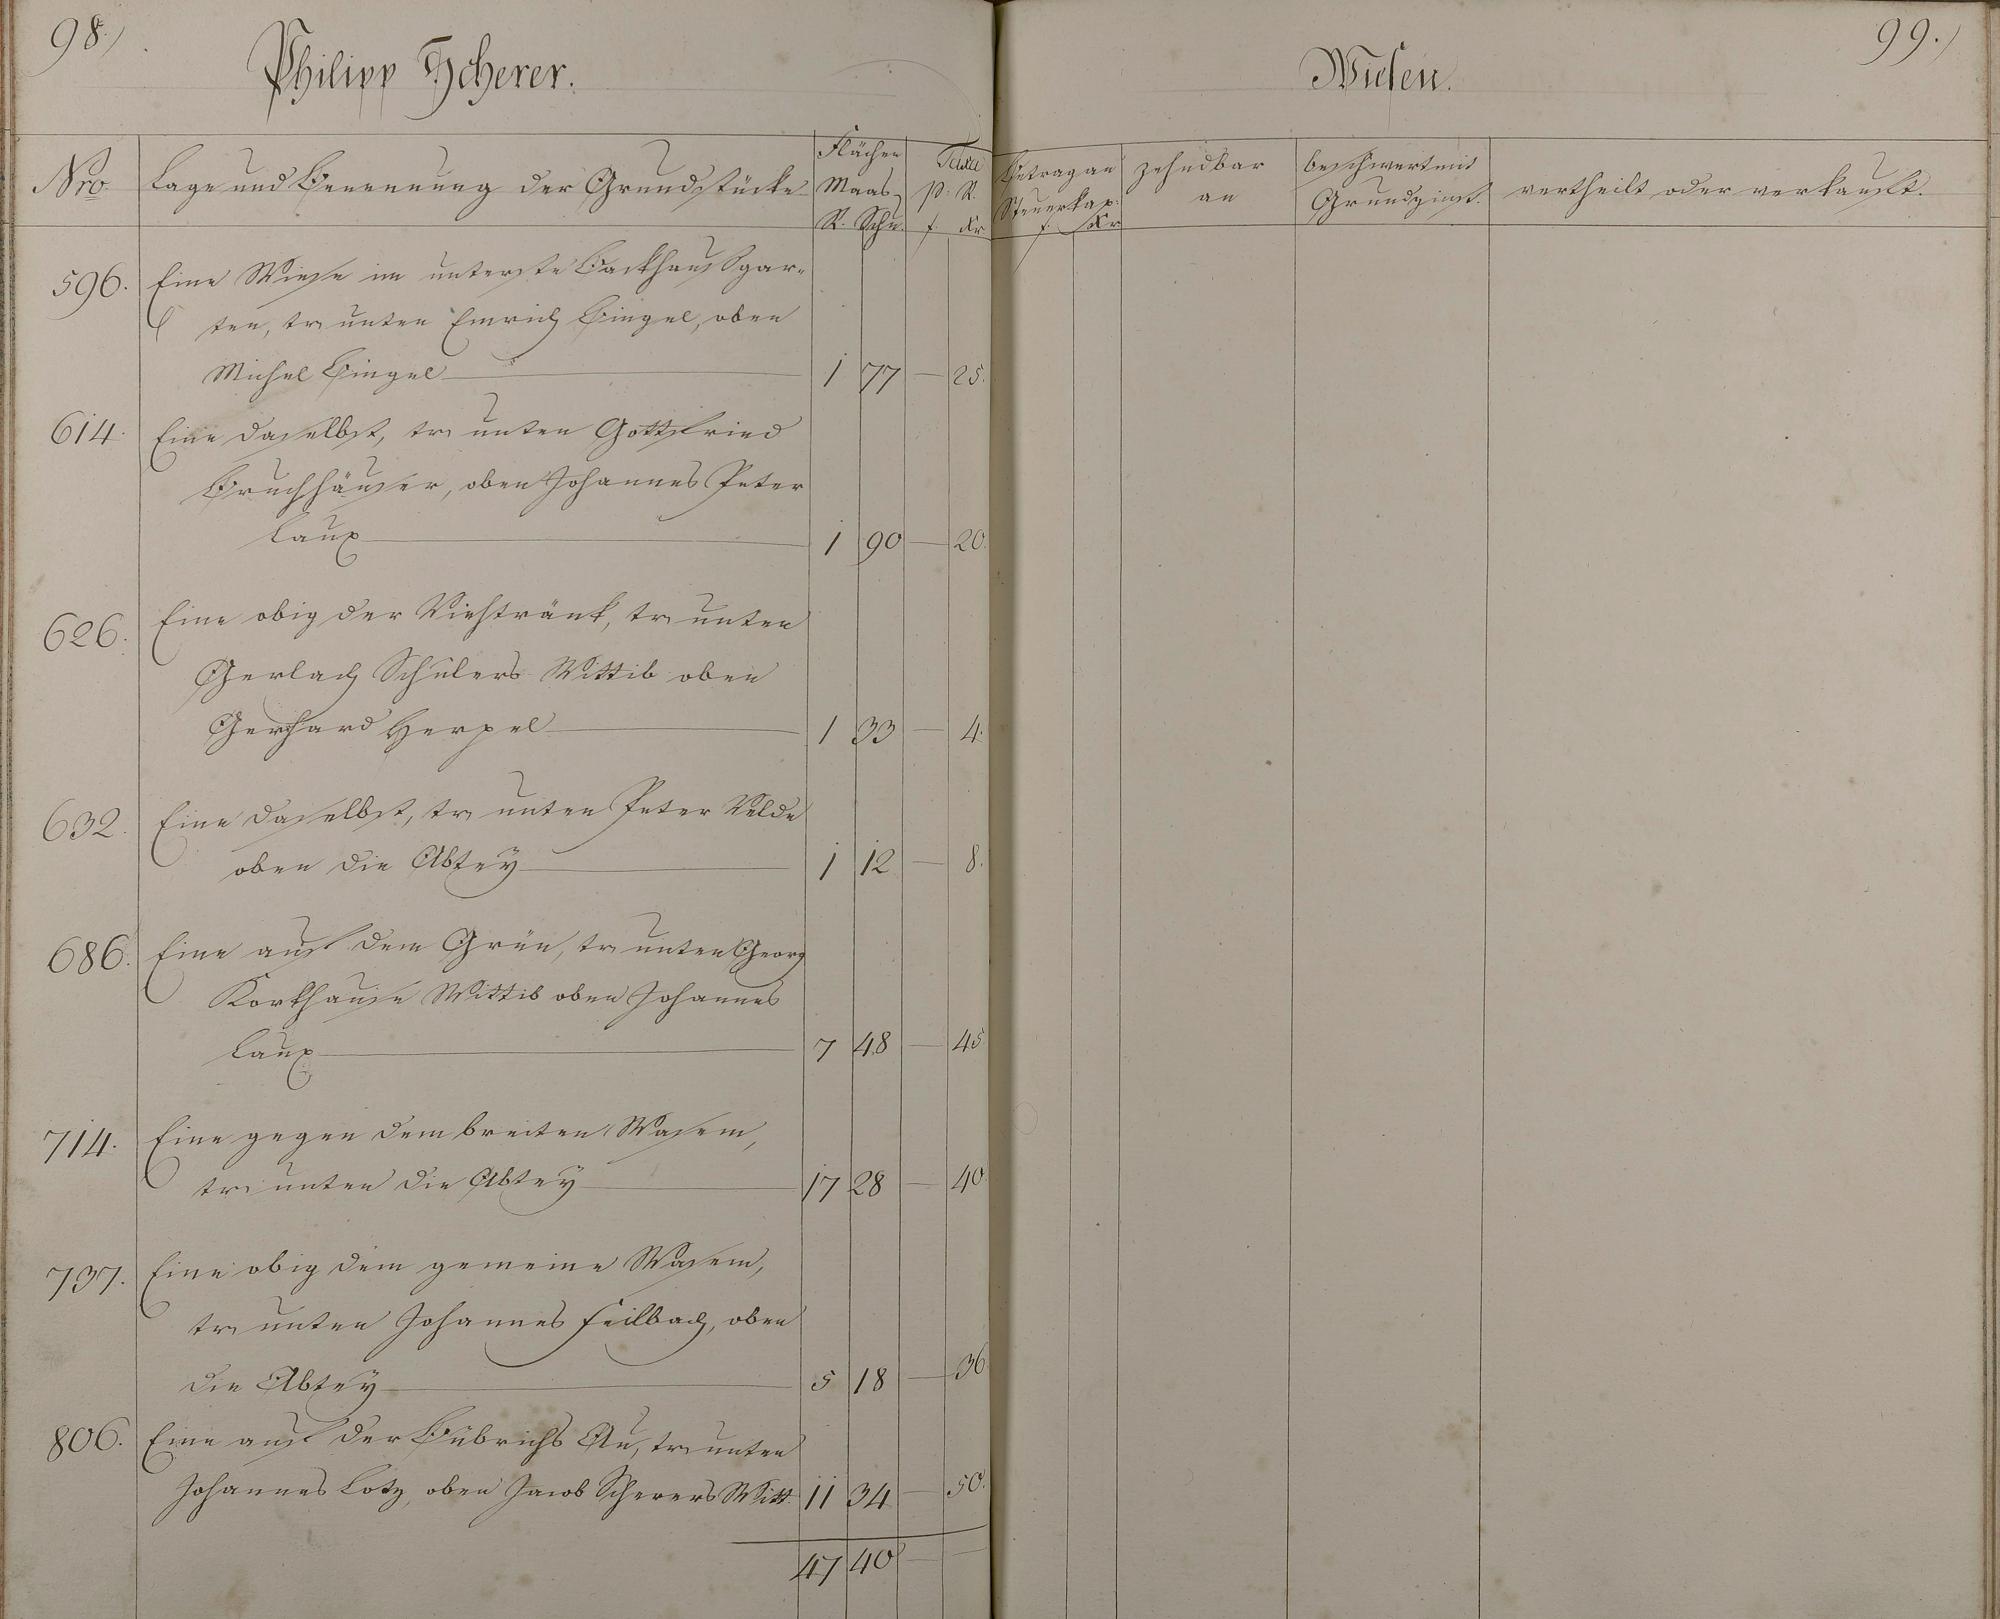 98.)
Philipp Scherer.
Nro
Lage und Benennung der Grundstücke
Flächen
Maas
R. Schu.
Taxe
p: R.
f. Kr
596. Eine Wiese im unterste Backhaußgar-
ten, tr. unten Emrich Bingel, oben
Michel Bingel 1 77 — 25.
614. Eine daselbst, tr. unten Gottfried
Bruchhäuser, oben Johannes Peter
Laux 1 90 — 20.
626. Eine obig der Viehtränk, tr. unten
Gerlach Schulers Wittib oben
Gerhard Herpel 1 33 — 4.
632. Eine daselbst, tr. unten Peter Velde
oben die Abtey 1 12 — 8.
686. Eine auf dem Grün, tr. unten Georg
Korkhause Wittib oben Johannes
Laux 7 48 — 45
714. Eine gegen dem breiten Wasem,
tr. unten die Abtey 17 28 — 40
737. Eine obig dem gemeine Wasem,
tr. unten Johannes Feilbach, oben
die Abtey 5 18 — 36
806. Eine auf der Bübrichs Au, tr. unten
Johannes Lotz, oben Jacob Scherers Witt. 11 34 — 50.
47 40 — —
99.)
Wiesen.
Betrag an
Steuerkap:
f. Kr
zehndbar
an
beschwert mit
Grundzinß.
vertheilt oder verkauft.